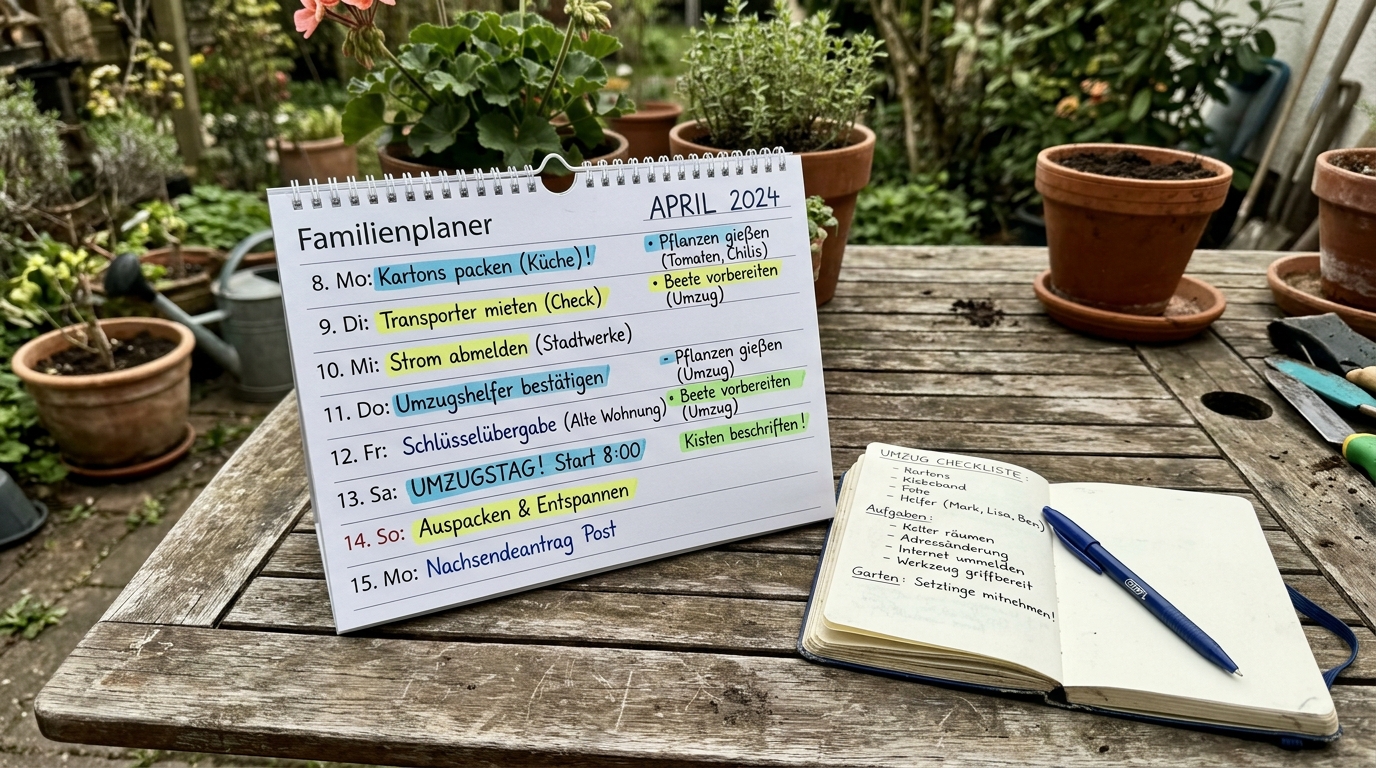 Familienplaner
APRIL 2024
8. Mo: Kartons packen (Küche)!
9. Di: Transporter mieten (Check)
10. Mi: Strom abmelden (Stadtwerke)
11. Do: Umzugshelfer bestätigen
12. Fr: Schlüsselübergabe (Alte Wohnung)
13. Sa: UMZUGSTAG! Start 8:00
14. So: Auspacken & Entspannen
15. Mo: Nachsendeantrag Post
• Pflanzen gießen
(Tomaten, Chilis)
• Beete vorbereiten
(Umzug)
- Pflanzen gießen
(Umzug)
• Beete vorbereiten
(Umzug)
Kisten beschriften!
UMZUG CHECKLISTE:
- Kartons
- Helfer (Mark, Lisa, Ben)
Aufgaben:
- räumen
- Adressänderung
- Internet ummelden
- Werkzeug griffbereit
Garten: Setzlinge mitnehmen!